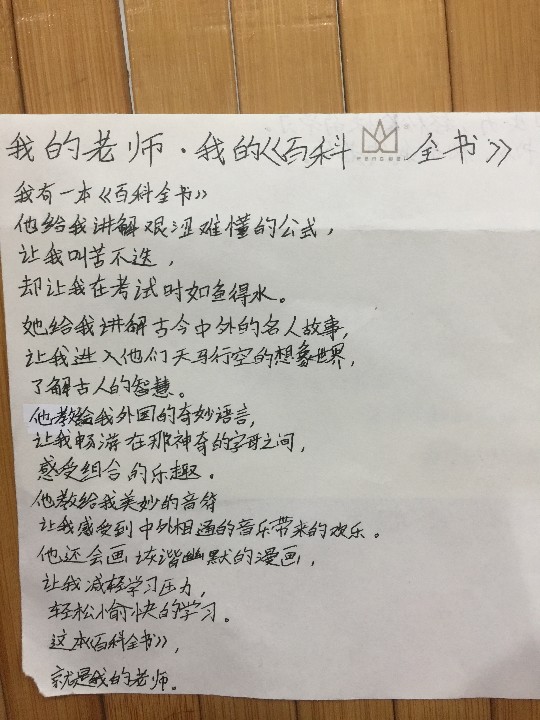 我的老师·我的《百科全书》
我有一本《百科全书》
他给我讲解艰涩难懂的公式，
让我叫苦不迭，
却让我在考试时如鱼得水。
她给我讲解古今中外的名人故事，
让我进入他们天马行空的想象世界，
了解古人的智慧。
他教给我外国的奇妙语言，
让我畅游在那神奇的字母之间，
感受组合的乐趣。
他教给我美妙的音符
让我感受到中外相通的音乐带来的欢乐。
他还会画诙谐幽默的漫画，
让我减轻学习压力，
轻松愉快的学习。
这本《百科全书》，
就是我的老师。